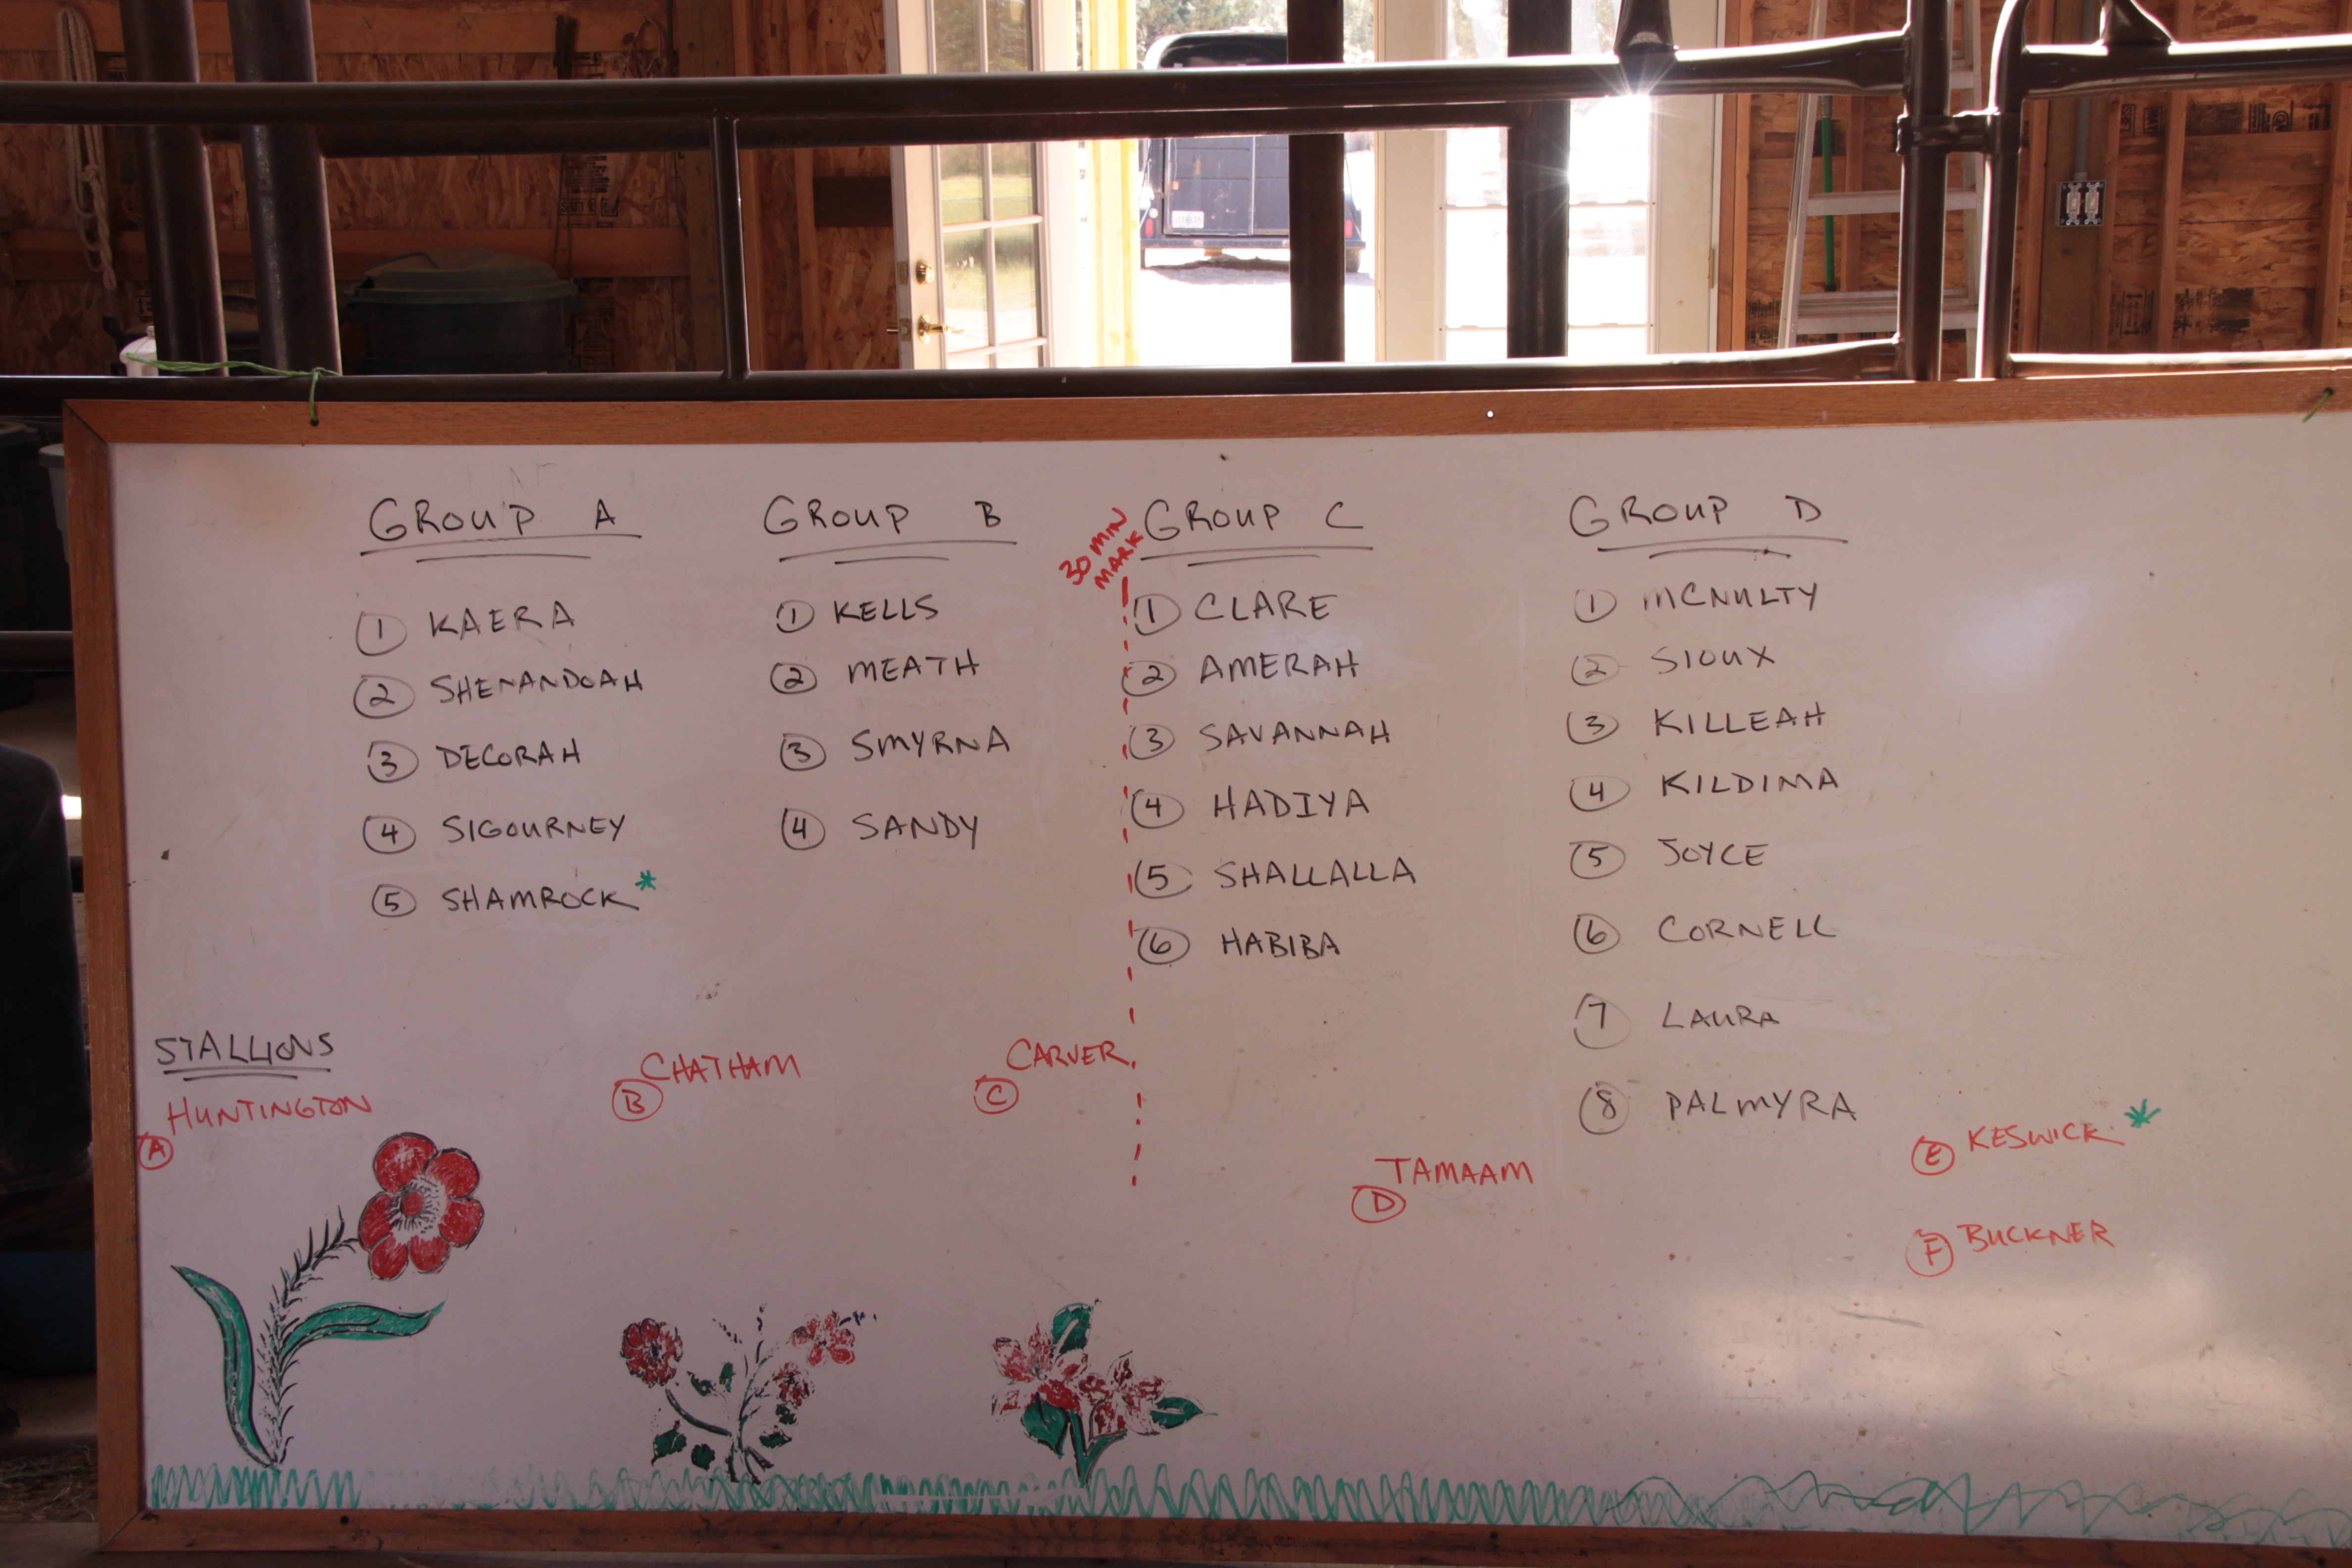 GROUP A
1 KAERA
2 SHENANDOAH
3 DECORAH
4 SIGOURNEY
5 SHAMROCK*
GROUP B
1 KELLS
2 MEATH
3 SMYRNA
4 SANDY
30 MIN
MARK
GROUP C
1 CLARE
2 AMERAH
3 SAVANNAH
4 HADIYA
5 SHALLALLA
6 HABIBA
GROUP D
1 MCNULTY
2 SIOUX
3 KILLEAH
4 KILDIMA
5 JOYCE
6 CORNELL
7 LAURA
8 PALMYRA
STALLIONS
A HUNTINGTON
B CHATHAM
C CARVER
D TAMAAM
E KESWICK *
F BUCKNER